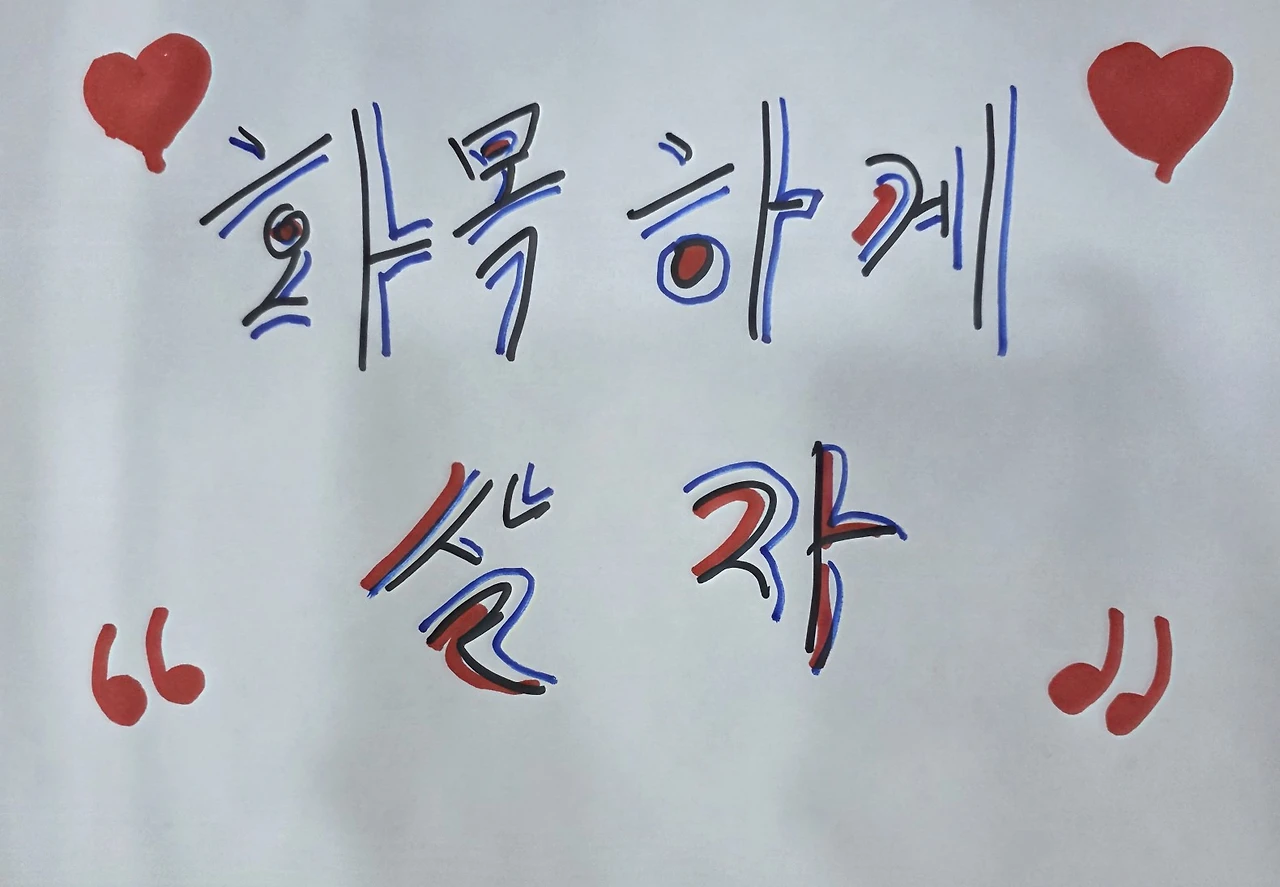 화목하게
살자